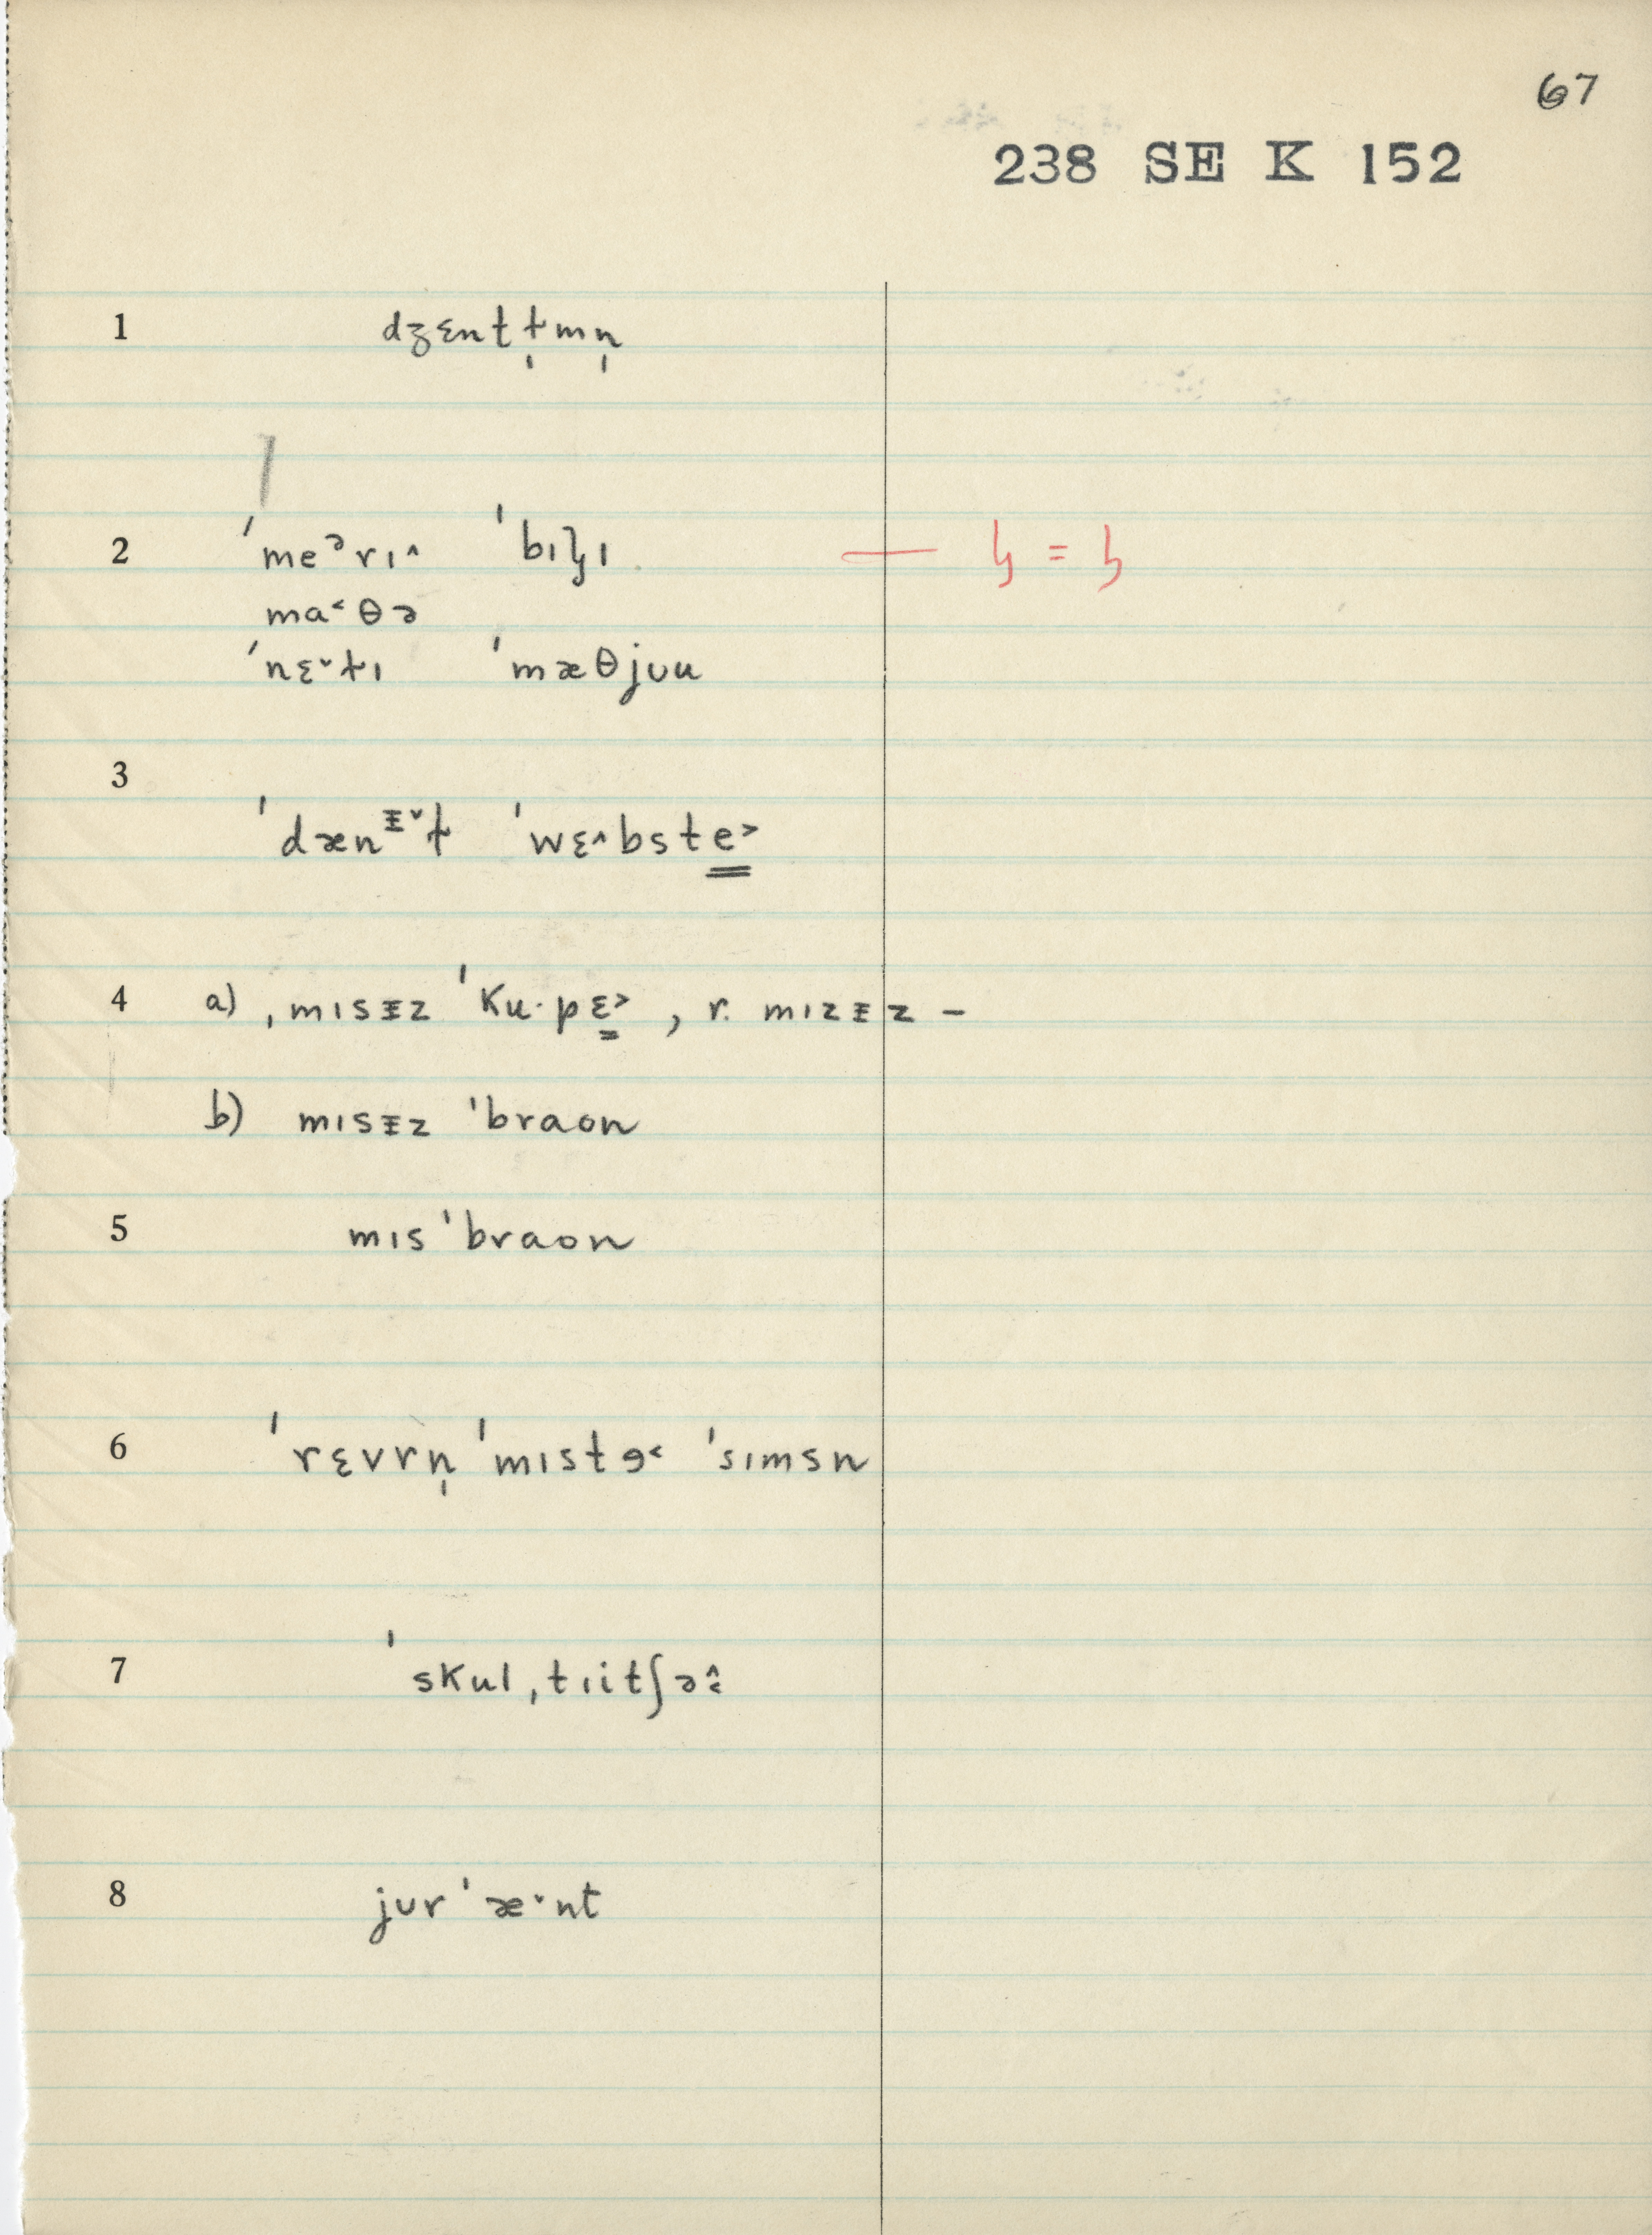 67
238 SE K 152
1 dʒɛntɫ̩mn̩
2 ˈmeᵊrɪ˄ ˈbɪɮɪ — ɮ = ɮ
ma˂θə
ˈnɛ˅ɫɪ ˈmæθjʊu
3
ˈdænᵻ˅ɫ ˈwɛ˄bste̳˃
4 a) ˌmɪsᵻz ˈku·pɛ̳˃ , r. mɪzᵻz –
b) mɪsᵻz ˈbraon
5 mɪs ˈbraon
6 ˈrɛvrn̩ ˈmɪstɘ˂ ˈsɪmsn
7 ˈskulˌtɪitʃə˄˂
8 jʊr ˈæ˅nt